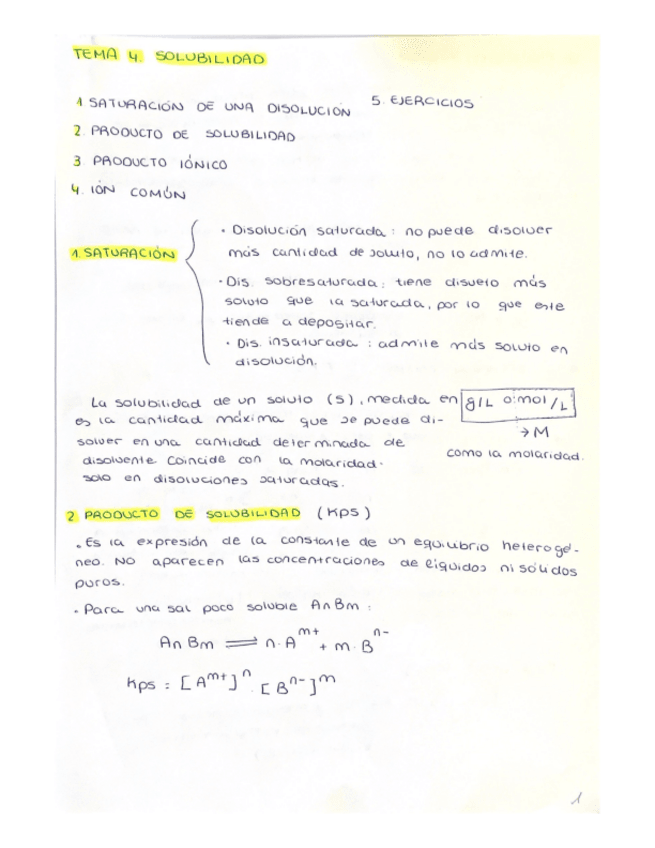 TEMA 4. SOLUBILIDAD
1 SATURACIÓN DE UNA DISOLUCIÓN
5. EJERCICIOS
2. PRODUCTO DE SOLUBILIDAD
3 PRODUCTO IÓNICO
4. IÓN COMÚN
1. SATURACIÓN
· Disolución saturada: no puede disolver
más cantidad de soluto, no lo admite.
· Dis. sobresaturada: tiene disuelto más
soluto que la saturada, por lo que este
tiende a depositar.
· Dis. insaturada: admite más soluto en
disolución.
La solubilidad de un soluto (s), medida en g/L o mol/L
es la cantidad máxima que se puede di-
→ M
solver en una cantidad determinada de
como la molaridad.
disolvente. Coincide con la molaridad.
solo en disoluciones saturadas.
2 PRODUCTO DE SOLUBILIDAD (Kps)
· Es la expresión de la constante de un equilibrio heterogé-
neo. NO aparecen las concentraciones de líquidos ni sólidos
puros.
· Para una sal poco soluble AnBm:
AnBm ⇌ n·A^m+ + m·B^n-
Kps = [A^m+]^n · [B^n-]^m
1